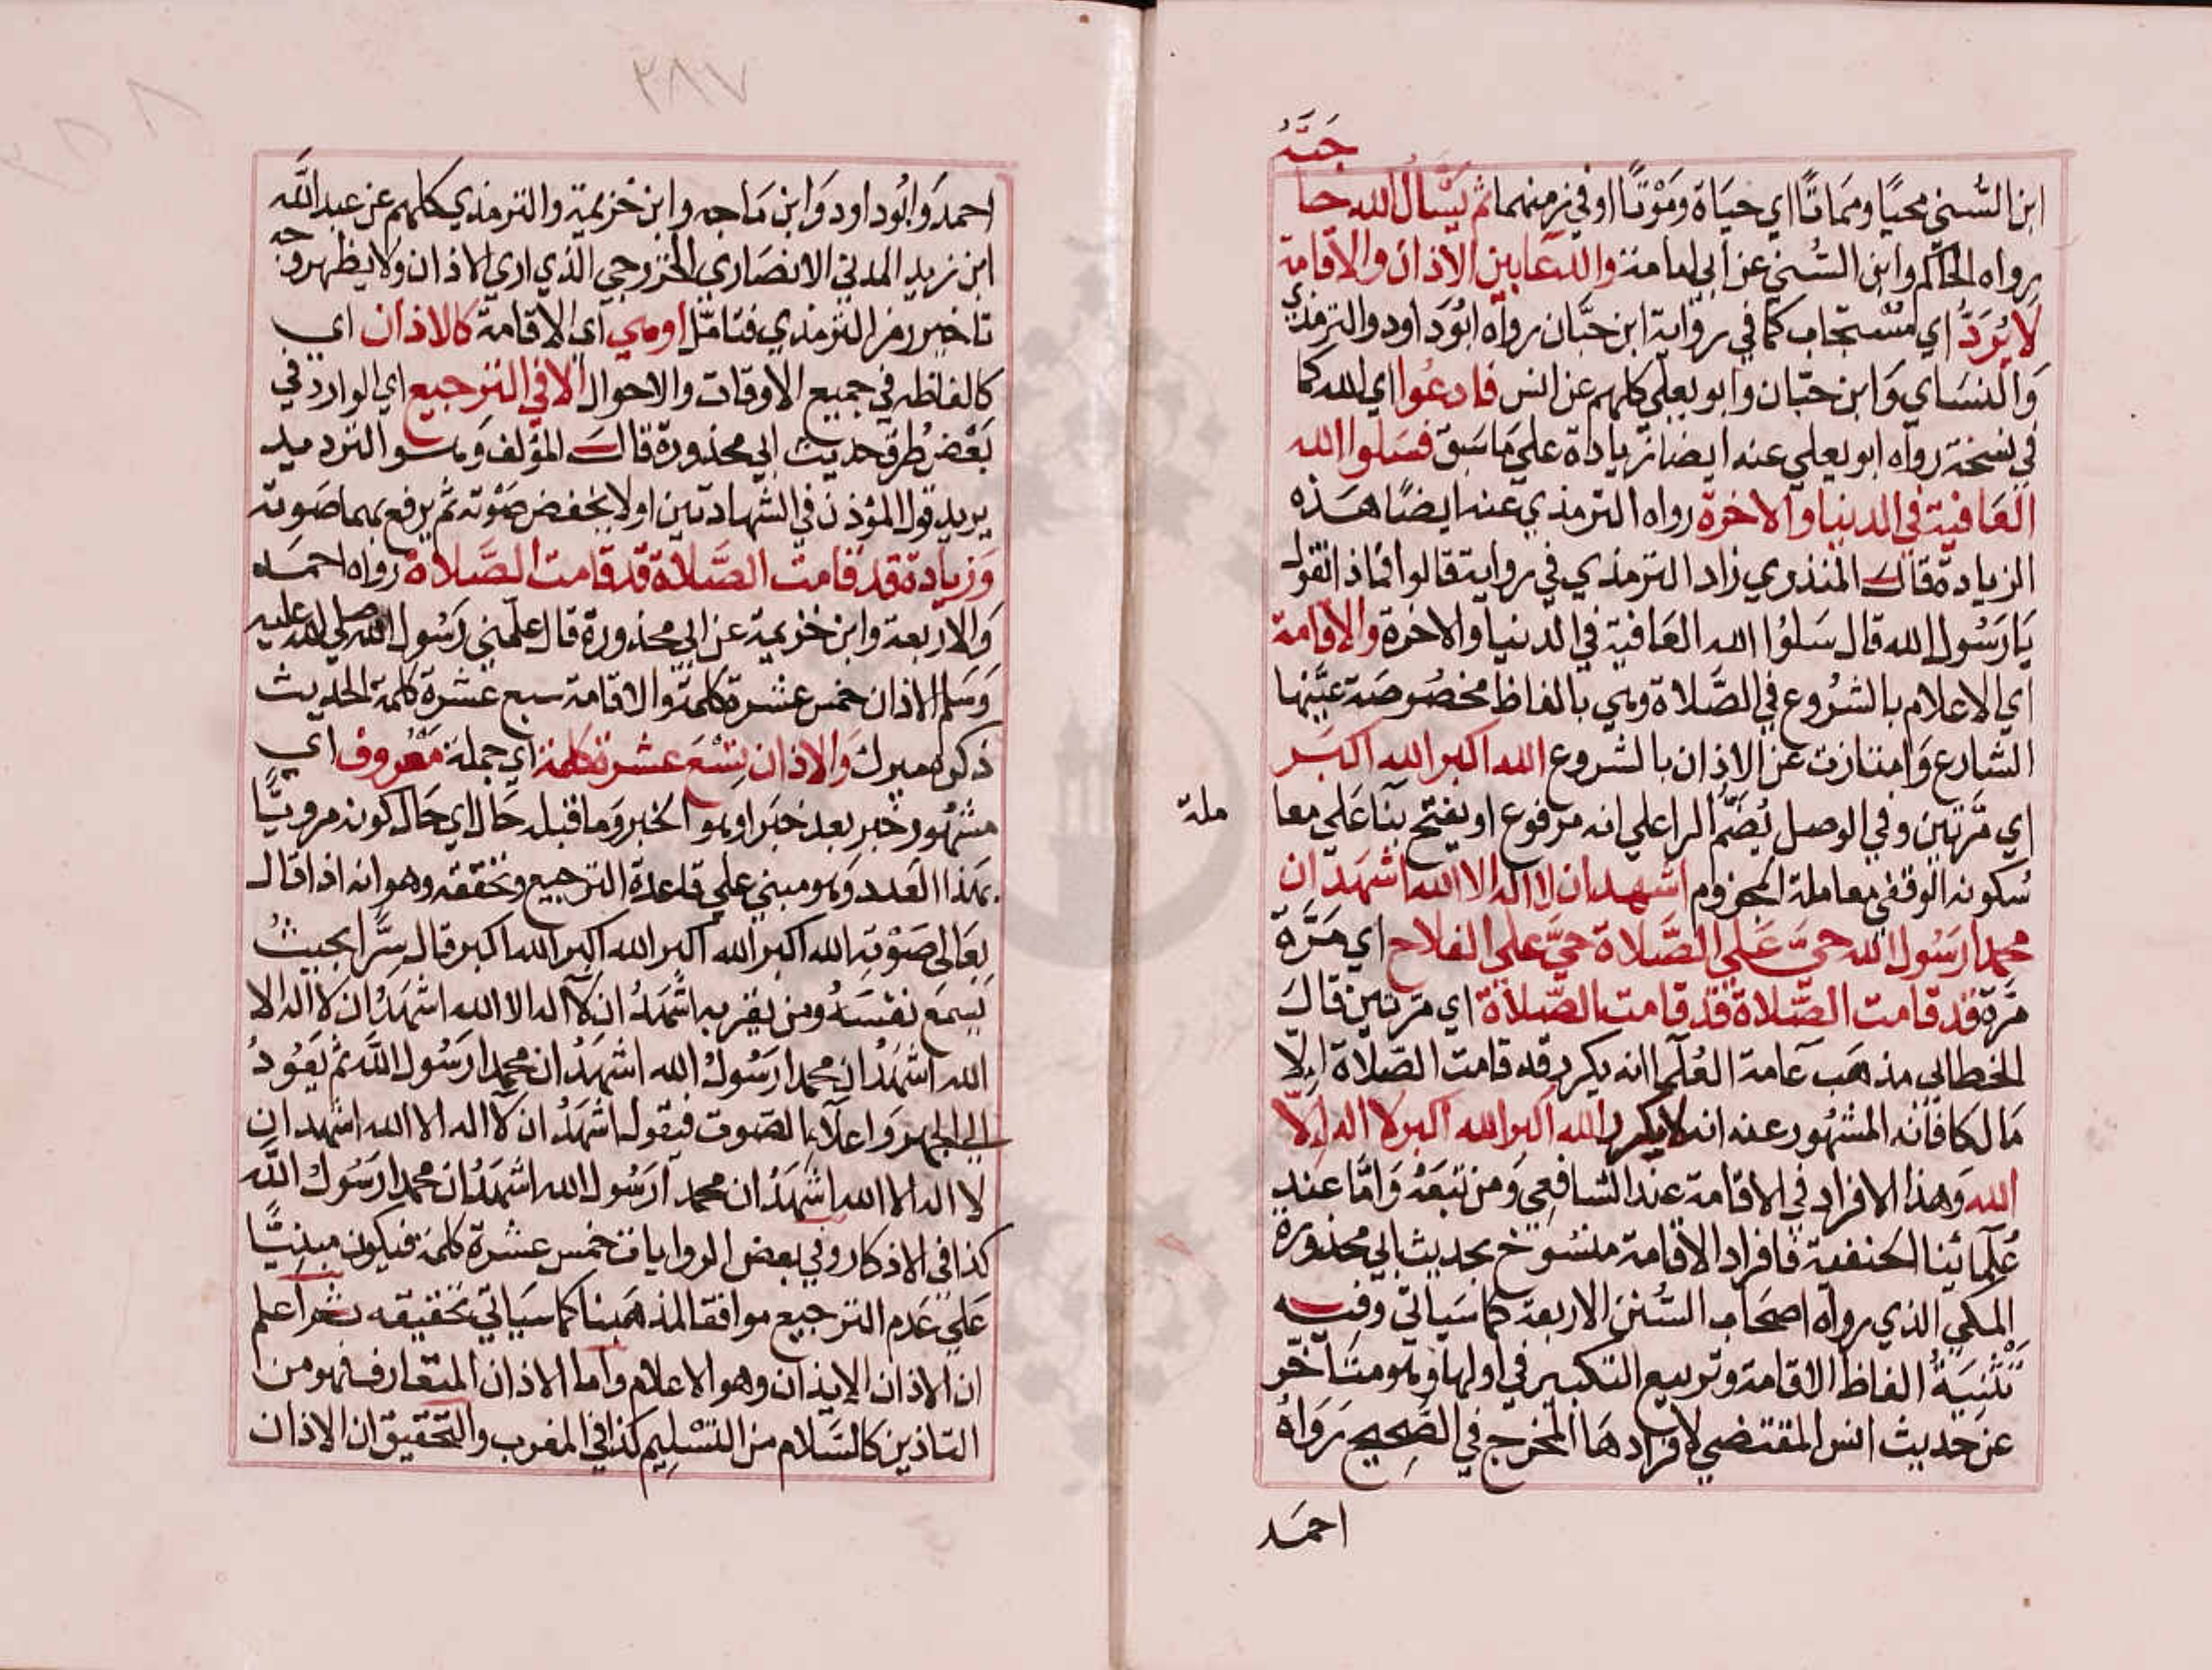 جته
ابن السُّني محيًا ومماتًا اي حياة ومَوْتًا او في زمنهما ثم يَسْأل الله حا
رواه الحاكم وابن السُّني عن ابي امامة والدعا بين الاذان والاقامة
لا يُرَدُّ اي مُسْتجاب كما في رواية ابن حبَّان رواه ابُو داود والترمذي
وَالنسَاي وَابن حبّان وابو يعلي كلهم عن انس فادعُوا اي الله كما
في نسخة رواه ابو يعلي عنه ايضا زيادة علي مَا سَبق فسَلوا الله
العَافية في الدنيا والاخرة رواه الترمذي عنه ايضًا هَذه
الزيادة قال المنذري زاد الترمذي في رواية قالوا فماذا نقول
يَا رَسُول الله قال سَلوُا الله العَافية في الدنيا والاخرة والاقامة
اي الاعلام بالشرُوع في الصَّلاة وهي بالفاظ مخصُوصَة عيَّنها
الشارع وَامتازت عن الاذان بالشروع الله اكبر الله اكبَر
اي مَّرتين وفي الوصل يُضَمُّ الرا علي انه مرفوع او يفتح بنَا عَلي معا
ملة
سُكونه الوقفي معاملة المجزوم اشهد ان لا اله الا الله اشهَد ان
محمدا رَسُول الله حيَّ عَلي الصَّلاة حيَّ علي الفلاح اي مَرَّة
مرّة قد قامت الصَّلاة قد قامت الصَّلاة اي مَرتين قالَ
الخطابي مذهَب عَامة العُلَما انه يكرر قد قامت الصَّلاة اِلّا
مَالكا فانه المشهُور عنه انه لا يكرر الله اكبر الله اكبر لا اله اِلّا
الله وَهذا الافراد في الاقامة عند الشافعِي وَمن تبَعَهُ وَامَّا عند
عُلمَائينا الحنفية فافراد الاقامة منسُوخ بحديث ابي محذورة
المكي الذي رواه اصحَاب السُّنن الاربعة كما سَياتي وفيه
تَثْنيَةُ الفاظ الاقامة وتربيع التكبير في اولها وهو متَاخّر
عن حَديث انس المقتضي لافرادهَا المخرج في الصَّحِيح رَوَاهُ
احمَد
٣٨٧
احمدَ وَابُو داود وَابن مَاجه وابن خزيمة والترمذي كلهم عن عبد اللَّه
ابن زيد المدني الانصَاري الخزرجي الذي اري الاذان ولا يظهر وجه
تاخير رمز الترمذي فتامّل او هي اي الاقامة كالاذان اي
كالفاظه في جميع الاوقات والاحوال الا في الترجيع اي الوارد في
بَعْض طُرق حديث ابي محذورة قال المؤلف وَهو الترديد
يريد قول المؤذن في الشهادتين اولا بخفض صَوْته ثم يرفع بهما صَوته
وَزيادة قد قامت الصَّلاة قد قامت الصَّلاة رواه احمَد
وَالاربعة وابن خزيمة عن ابي محذورة قال علّمني رَسُول الله صلى الله عليه
وَسَلم الاذان خمس عشرة كلمة والاقامة سبع عشرة كلمة الحديث
ذكره ميرك وَالاذان تِسْعَ عشرة كلمة اي جملة مَعْروف اي
مشهُور خبر بعد خبَر او هو الخبر وَما قبله حَال اي حَال كونه مرويًّا
بهَذا العَدد وَهو مبني علي قاعدة الترجيع وتحققه وهو انه اذا قال
بعَالي صَوْتِه الله اكبر الله اكبر الله اكبر الله اكبر قال سِرًّا بحَيثُ
يَسمَع نفسَهُ ومن بقربه اشَهَدُ ان لَا اله الا الله اشهَدُ ان لا اله الا
الله اشهَدُ ان محمدا رَسُول الله اشهَدُ ان محمدا رَسُول اللَّه ثم يَعُودُ
الي الجهر وَاعلَاء الصَوت فيقول اشهَدُ ان لا اله الا الله اشهد ان
لا اله الا الله اشهَدُ ان محمدا رَسُول الله اشهَدُ ان محمدا رَسُول اللَّه
كذا في الاذكار وفي بعض الروايات خمس عشرة كلمة فيكون مبنِيًّا
عَلي عَدم الترجيع موافقا لمذهَبنا كما سيَاتي تحقيقه ثم اعلم
ان الاذان الايذان وهو الاعلام واما الاذان المتعَارف فهو من
التاذين كالسَّلام من التسْلِيم كذا في المغرب والتحقيق ان الاذان